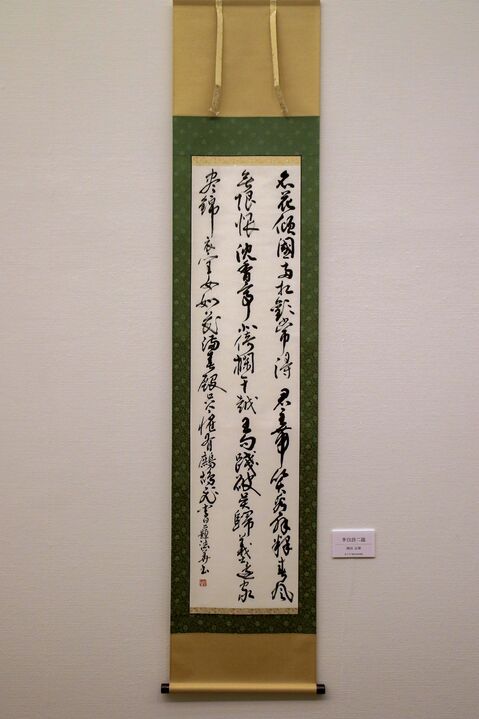 名花傾國両相歓常得君王帶笑看解釋春風
無限恨沈香亭北倚欄干越王勾踐破吳歸義士還家
盡錦衣宮女如花満春殿只今惟有鷓鴣飛
李白詩二題